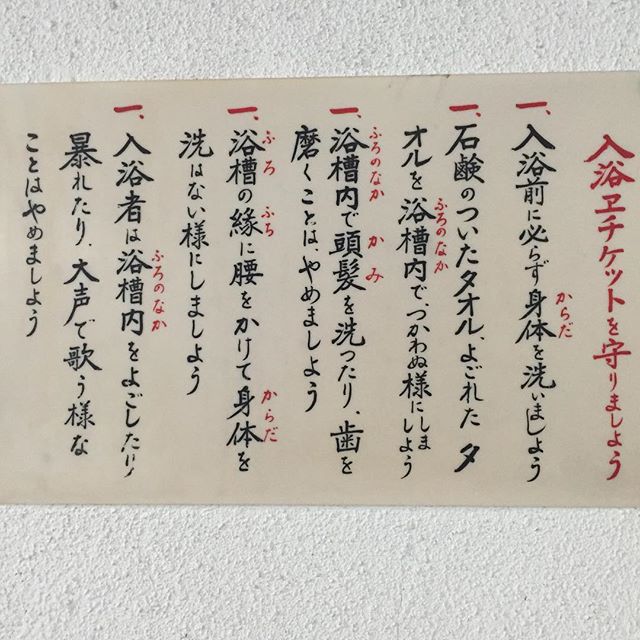 入浴ヱチケットを守りましよう
一、入浴前に必らず身体を洗いましよう
一、石鹸のついたタオル、よごれた タ
オルを浴槽内で、つかわぬ様にしましよう
一、浴槽内で頭髪を洗ったり、歯を
磨くことは、やめましよう
一、浴槽の縁に腰をかけて身体を
洗はない様にしましよう
一、入浴者は浴槽内をよごしたり
暴れたり、大声で歌う様な
ことはやめましよう
からだ
ふろのなか
ふろのなか
かみ
ふろ
ふち
からだ
ふろのなか